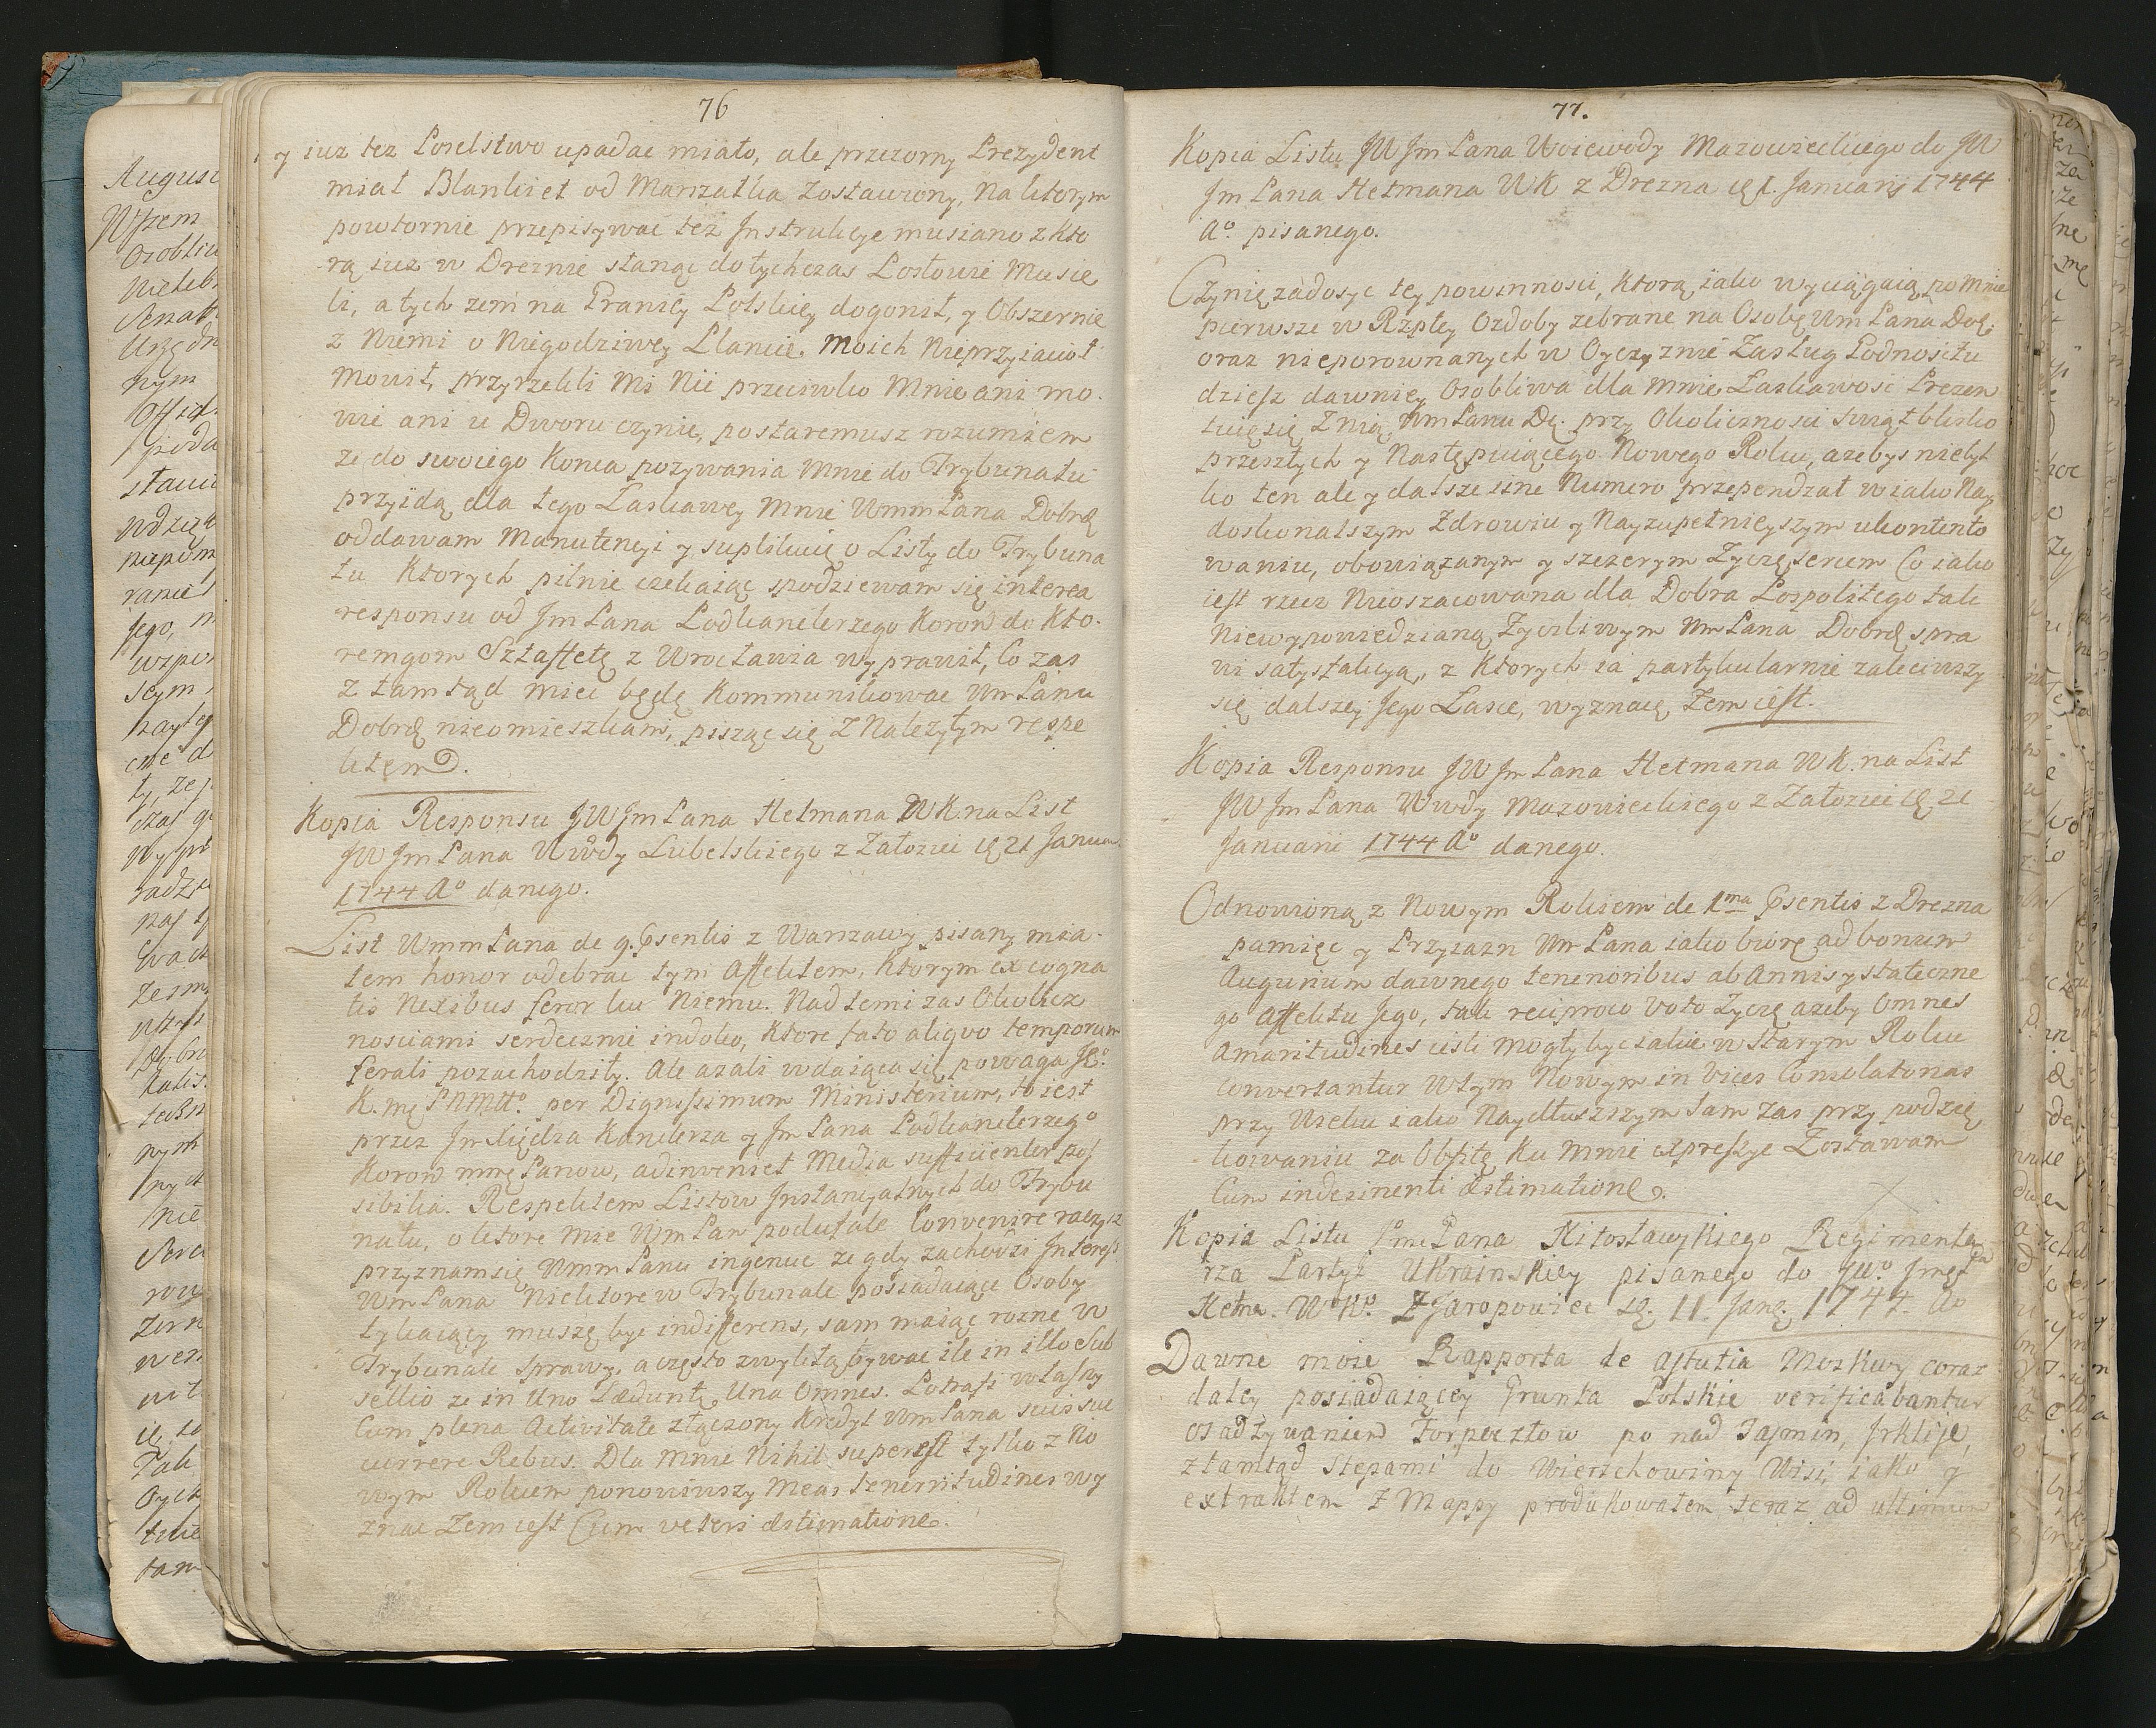 76
y iuz tez Poselstwo upadac miało, ale przezorny Prezydent
miał Blankiet od Marszałka zostawiony, na ktorym
powtornie przepisywac też Instrukcye musiano z kto
rą iuz w Dreznie stanąc dotychczas Posłowie musie
li, a tych zem na Granicy Polskiey dogonił, y obszernie
z Niemi o Niegodziwey Plancie Moich Nieprzyiacioł
mowił, przyrzekli Mi Nic przeciwko Mnie ani mo.
wic ani u Dworu czynic, postaremusz rozumiem
ze do swoiego Konca pozywania Mnie do Trybunału
przyidą, dla tego Laskawey Mnie Wmm Pana Dobrę
oddawam Manutencyi y suplikuię o Listy do Trybuna
łu Ktorych pilnie czekaiąc spodziewam się interea
responsu od Jm Pana Podkanclerzego Koron do Kto.
remgom Sztaffetę z Wrocławia wyprawił, Co zas
z tamtąd miec będę Kommunikowac Wm Panu
Dobrę nieomieszkam, pisząc się z Nalezytym respe
ktem.
Kopia Responsu JW Jm Pana Hetmana WK. na List
JW Jm Pana Wwdy Lubelskiego z Załoziec ię 21 Januar.
1744 Ao danego.
List Wmm Pana de 9. Psentis z Warszawy pisany mia-
łem honor odebrac tym Affektem, Ktorym ex cogna
tis Nexibus feror ku Niemu. Nad temi zas Okolicz
nosciami serdecznie indoleo, Ktore fato aliquo temporum
ferali pozachodziły. Ale azali wdaiąca się powaga Jeo.
K. mę PNMtto. per Dignissimum Ministerium, to iest
przez Jm Xiędza Kanclerza y Jm Pana Podkanclerzego
Koron mmę Panow, adinveniet Media sufficienter pos
sibilia. Respektem Listow Instancyalnych do Trybu
nału, o ktore mie Wm Pan podufale Convenire raczysz
przyznamsię Wmm Panu ingenue ze gdy zachodzi Interess
Wm Pana niektore w Trybunale posiadaiące Osoby
tykaiący muszę byc indifferens, sam maiąc rozne w
Trybunale sprawy, a często zwykłą bywac ile in illo Sub
sellio ze in Uno Lædunt. Una Omnes. Potrafi własny
Cum plena Activitate złączony Kredyt Wm Pana suis suc
currere Rebus. Dla Mnie Nihil superest tylko z No
wym Rokiem ponowiwszy Meas tenerritudines wy
znac Zem iest Cum veteri æstimatione.
77.
Kopia Listu JW Jm Pana Woiewody Mazowieckiego do JW
Jm Pana Hetmana WK z Drezna ię 1. Januarij 1744
Ao. pisanego.
Czynię zadosyc tey powinnosci, Ktorą iako wyciągaią po Mnie
pierwsze w Rzptey Ozdoby zebrane na Osobę Wm Pana Dob:
oraz nieporownanych w Oyczyznie Zasług Podnosi tu
dziesz dawniey Osobliwa dla Mnie Laskawosc Prezen
tuię się z nią Wm Panu Dę. przy Okolicznosci swiąt blisko
przeszłych y Następuiącego Nowego Roku, azebys nietyl
ko ten ale y dalsze sine Numero przependzał w iako Nay
doskonalszym Zdrowiu y Nayzupełnieyszym ukontento
waniu, obowiązanym y szczerym Zyczę sercem Co iako
iest rzecz nieoszacowana dla Dobra Pospolitego tak
Niewypowiedzianą Zyczliwym Wm Pana Dobrę spra
wi satysfakcyą, z Ktorych ia partykularnie zaleciwszy
się dalszey Jego Lasce, wyznaię Zem iest.
Kopia Responsu JW Jm Pana Hetmana WK. na List
JW Jm Pana Wwdy Mazowieckiego z Załoziec ię 21
Januarii 1744 Ao danego.
Odnowioną z Nowym Rokiem de 1ma Psentis z Drezna
pamięc y Przyiazn Wm Pana iako biorę ad bonum
Augurium dawnego tenenoribus ab Annis y stateczne
go Affektu Jego, tak reciproco voto Zyczę azeby Omnes
Amaritudines iesli mogły byc iakie w starym Roku
Convertantur w tym Nowym in Vices Consolatorias
przy Wieku iako Naydłuszszym sam zas przy podzię
kowaniu za Obfitę Ku Mnie expressye Zostawam
Cum indesinenti æstimatione.
Kopia Listu Jm Pana Kitosławskiego Regimenta
rza Partyi Ukrainskiey pisanego do JWo. Jmę Pa
Hetna. W Ko. Z Jaropowiec ię. 11. Janę. 1744. Ao
Dawne moie Rapporta de astutia Moskwy coraz
daley posiadaiącey Grunta Polskie verificabantur
osadzywaniem Forpocztow po nad Tasmin, Irkliie,
ztamtąd stepami do Wierzchowiny Wisi, iako y
extraktem z Mappy produkowałem, teraz ad ultimum